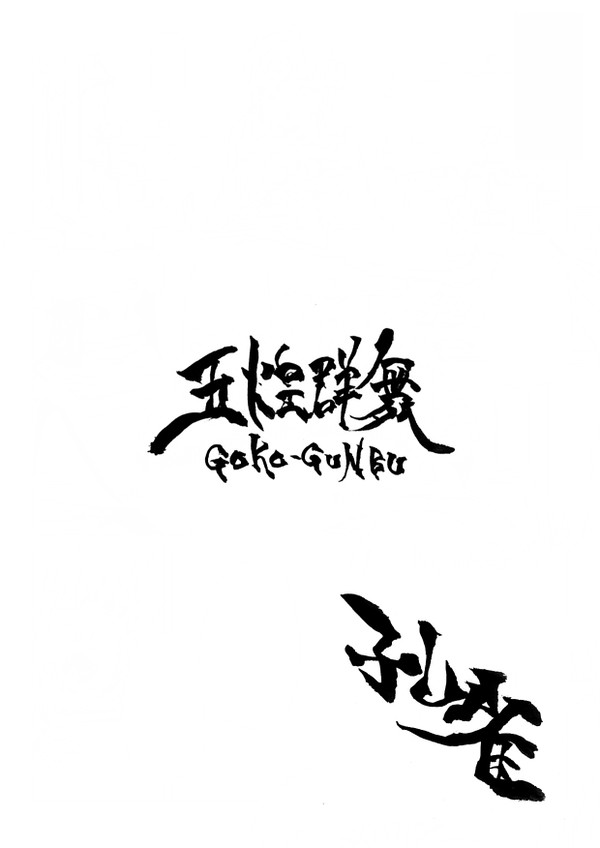 五煌群舞
GOKO-GUNBU
孔雀